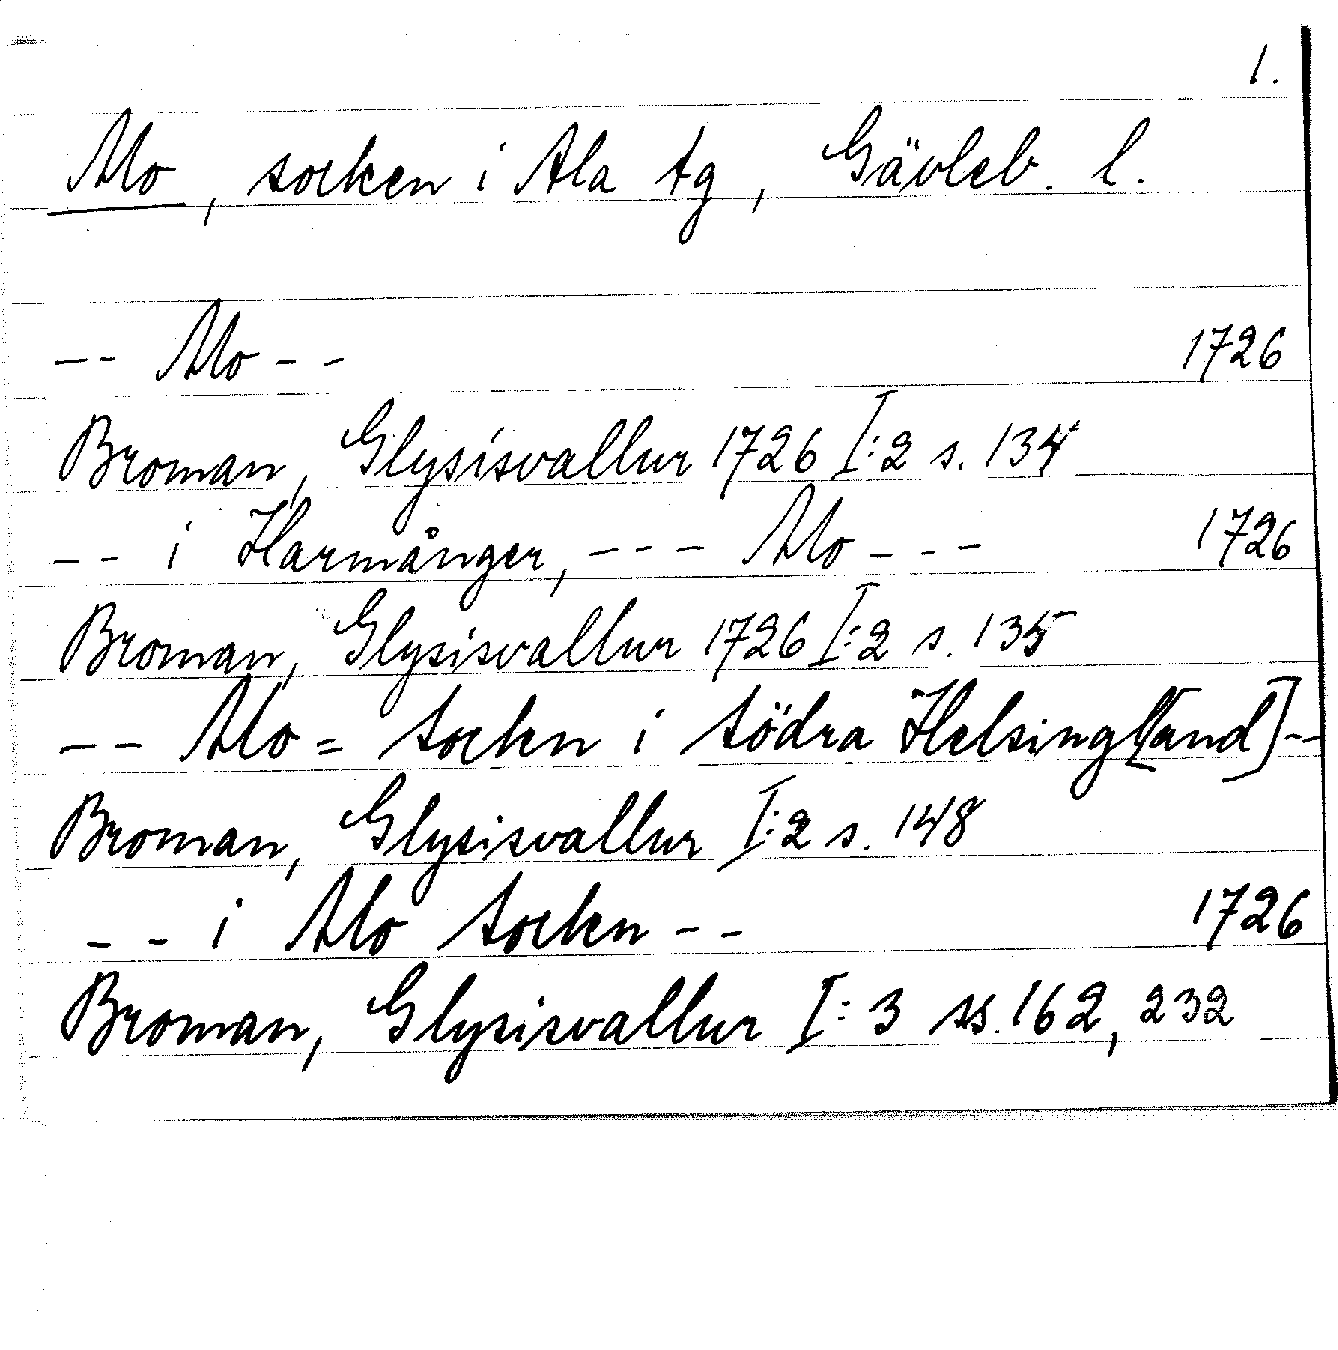 1.
Mo, socken i Ala tg, Gävleb. l.
-- Mo -- 1726
Broman, Glysisvallur 1726 I:2 s. 134
-- i Harmånger, --- Mo --- 1726
Broman, Glysisvallur 1726 I:2 s. 135
-- Mo = Sockn i Södra Helsingl[and] --
Broman, Glysisvallur I:2 s. 148
-- i Mo Sockn -- 1726
Broman, Glysisvallur I:3 ss. 162, 232